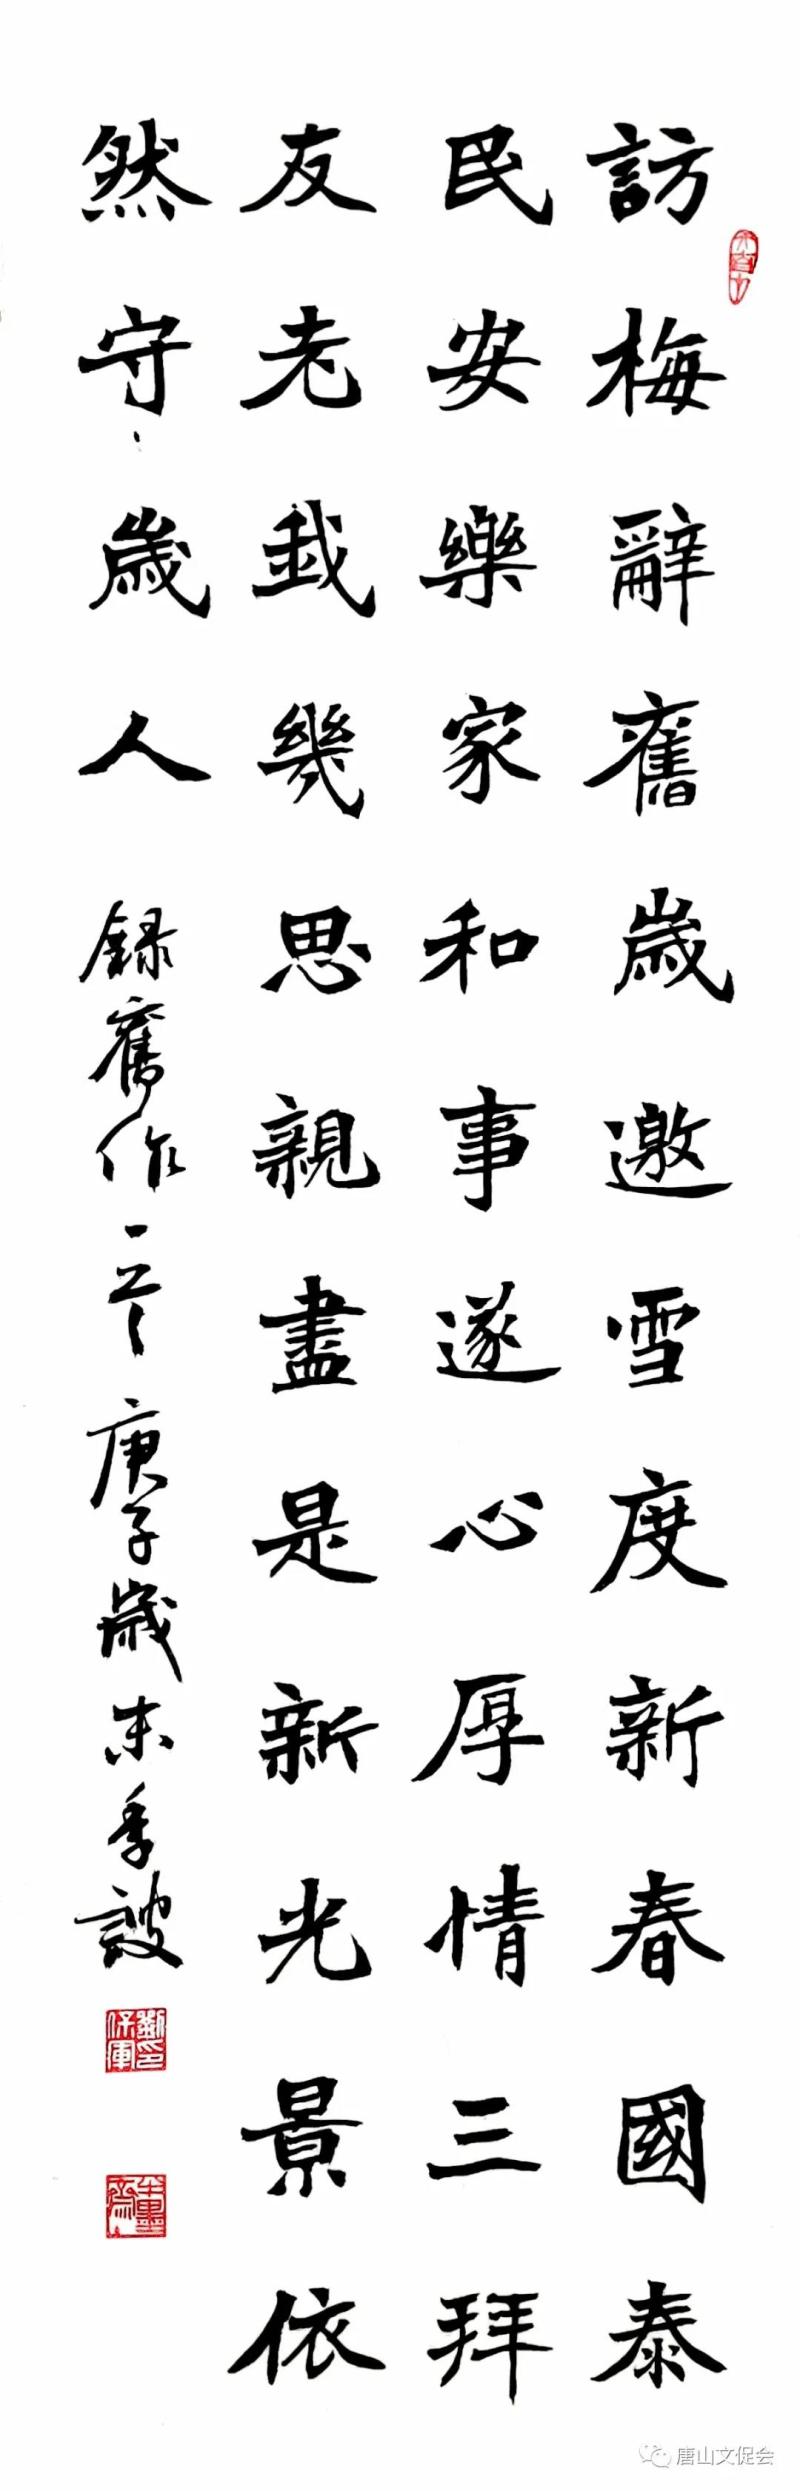 訪梅辭舊歲邀雪度新春國泰
民安樂家和事遂心厚情三拜
友老我幾思親盡是新光景依
然守歲人 録舊作一 庚子歲末季
劉印保軍
唐山文促会